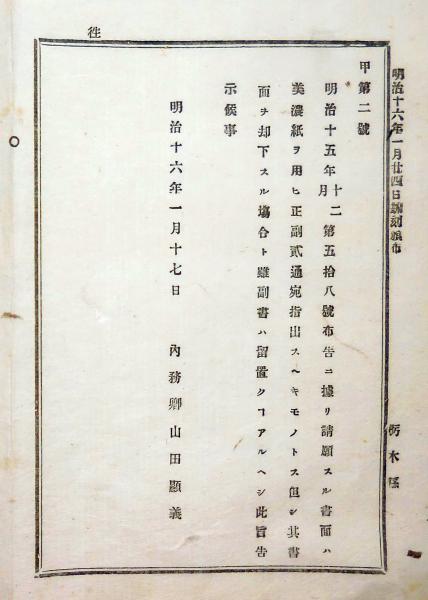 明治十六年一月廿四日翻刻頒布
栃木縣
甲第二號
明治十五年十二月第五拾八號布告ニ據リ請願スル書面ハ
美濃紙ヲ用ヒ正副貳通宛指出スヘキモノトス但シ其書
面ヲ却下スル塲合ト雖副書ハ留置クヿアルヘシ此旨告
示候事
明治十六年一月十七日 內務卿山田顯義